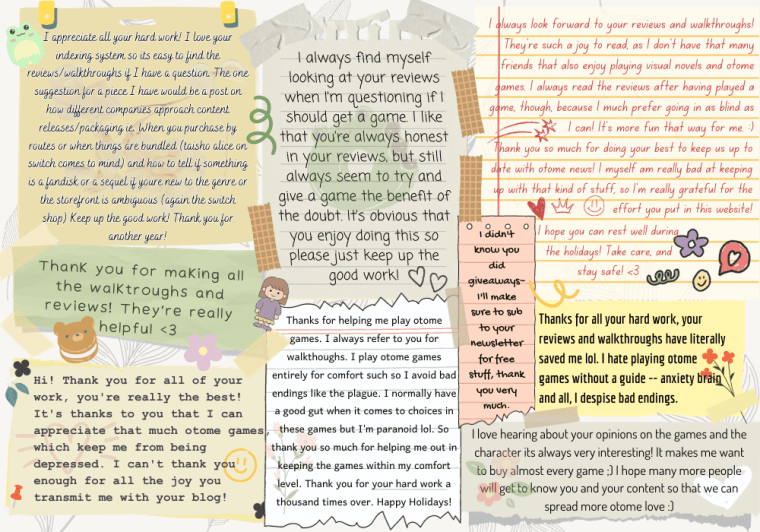 I appreciate all your hard work! I love your
indexing system so its easy to find the
reviews/walkthroughs if I have a question. The one
suggestion for a piece I have would be a post on
how different companies approach content
releases/packaging ie. When you purchase by
routes or when things are bundled (taisho alice on
switch comes to mind) and how to tell if something
is a fandisk or a sequel if youre new to the genre or
the storefront is ambiguous (again the switch
shop) Keep up the good work! Thank you for
another year!
Thank you for making all
the walktroughs and
reviews! They're really
helpful <3
Hi! Thank you for all of your
work, you're really the best!
It's thanks to you that I can
appreciate that much otome games,
which keep me from being
depressed. I can't thank you
enough for all the joy you
transmit me with your blog!
I always find myself
looking at your reviews
when I'm questioning if I
should get a game. I like
that you're always honest
in your reviews, but still
always seem to try and
give a game the benefit of
the doubt. It's obvious that
you enjoy doing this so
please just keep up the
good work!
Thanks for helping me play otome
games. I always refer to you for
walthoughs. I play otome games
entirely for comfort such so I avoid bad
endings like the plague. I normally have
a good gut when it comes to choices in
these games but I'm paranoid lol. So
thank you so much for helping me out in
keeping the games within my comfort
level. Thank you for your hard work a
thousand times over. Happy Holidays!
I always look forward to your reviews and walkthroughs!
They're such a joy to read, as I don't have that many
friends that also enjoy playing visual novels and otome
games. I always read the reviews after having played a
game, though, because I much prefer going in as blind as
I can! It's more fun that way for me. :)
Thank you so much for doing your best to keep us up to
date with otome news! I myself am really bad at keeping
up with that kind of stuff, so I'm really grateful for the
effort you put in this website!
I hope you can rest well during
the holidays! Take care, and
stay safe! <3
I didn't
know you
did
giveaways-
I'll make
sure to sub
to your
newsletter
for free
stuff, thank
you very
much.
Thanks for all your hard work, your
reviews and walkthroughs have literally
saved me lol. I hate playing otome
games without a guide -- anxiety brain
and all, I despise bad endings.
I love hearing about your opinions on the games and the
character its always very interesting! It makes me want
to buy almost every game ;) I hope many more people
will get to know you and your content so that we can
spread more otome love :)